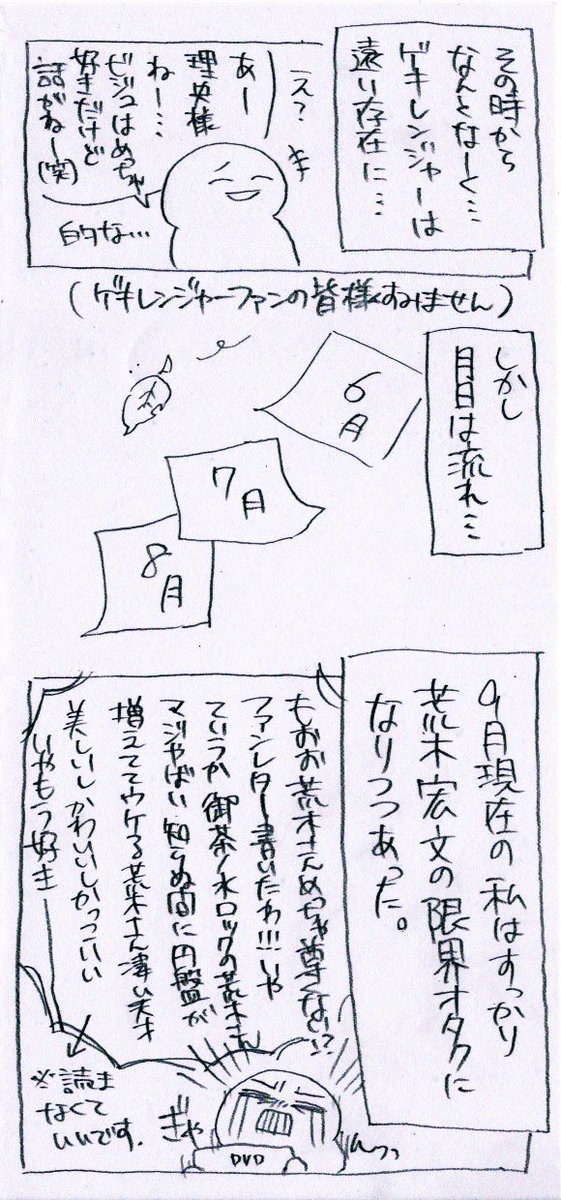 その時から
なんとなーく…
ゲキレンジャーは
遠い存在に…
え?
あー
理央様
ねー…
ビジュはめっちゃ
好きだけど
話がねー(笑)
的な…
(ゲキレンジャーファンの皆様すみません)
しかし
月日は流れ…
6月
7月
8月
9月現在の私はすっかり
荒木宏文の限界オタクに
なりつつあった。
もおお荒木さんめっちゃ尊くない!?
ファンレター書いたわ!!!いや
ていうか御茶ノ水ロックの荒木さん
マジやばい知らぬ間に円盤が
増えててウケる荒木さん凄い天才
美しいしかわいいしかっこいい
いやもう好き
※読ま
なくて
いいです.
ぎゃ
DVD